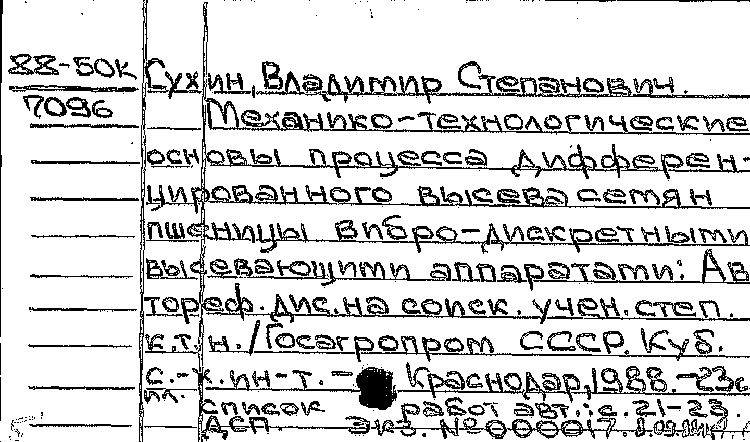 88-50к Сухин, Владимир Степанович.
7096 Механико-технологические
основы процесса дифферен-
цированного высева семян
пшеницы вибро-дискретными
высевающими аппаратами: Ав
тореф. дис. на соиск. учен. степ.
к.т.н. /Госагропром СССР. Куб.
с.-х. ин-т. - Краснодар, 1988. -23с
ил.
список работ авт.: с. 21-23.
ДСП. Экз. №000017.